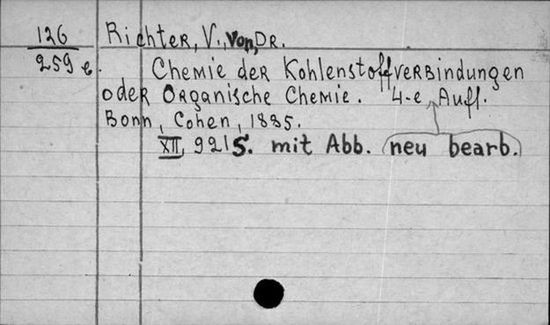 126
259 e.
Richter, V., von, Dr.
Chemie der Kohlenstoffverbindungen
oder Organische Chemie. 4-e Aufl.
Bonn, Cohen, 1885.
XII, 921 S. mit Abb. (neu bearb.)